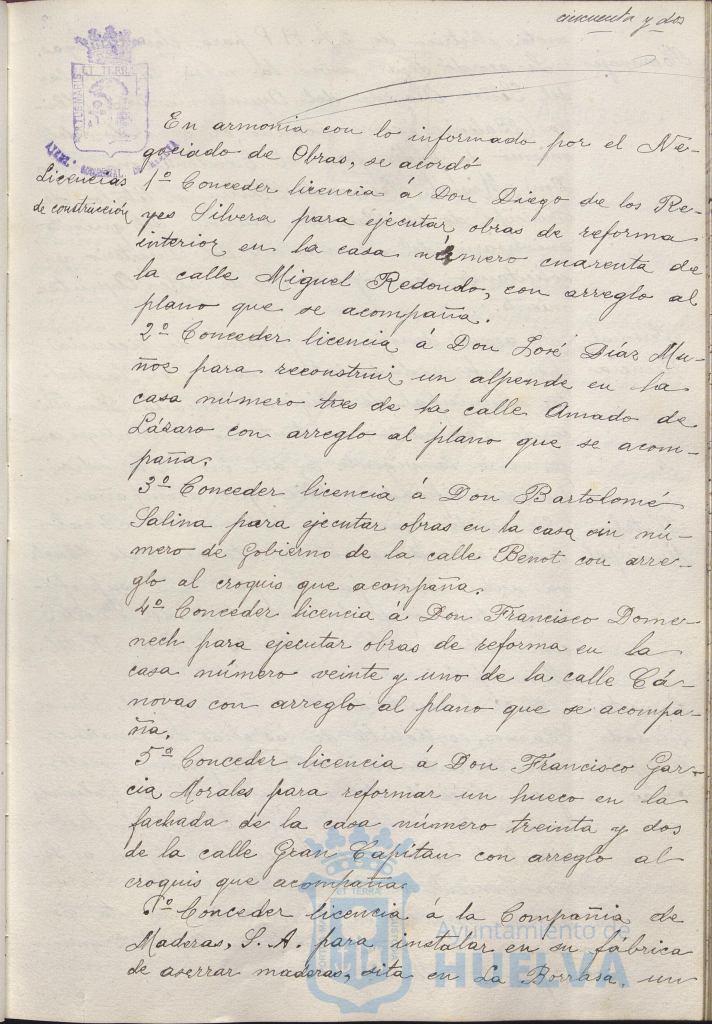 cincuenta y dos
ET TERRÆ
En armonia con lo informado por el Ne-
gociado de Obras, se acordó
Licencias
de construcción
1º Conceder licencia á Don Diego de los Re-
yes Silvera para ejecutar obras de reforma
interior en la casa número cuarenta de
la calle Miguel Redondo, con arreglo al
plano que se acompaña.
2º Conceder licencia á Don José Díaz Mu-
ños para reconstruir un alpende en la
casa número tres de la calle Amado de
Lázaro con arreglo al plano que se acom-
paña.
3º Conceder licencia á Don Bartolomé
Salina para ejecutar obras en la casa sin nú-
mero de Gobierno de la calle Benot con arre-
glo al croquis que acompaña.
4º Conceder licencia á Don Francisco Domer-
nech para ejecutar obras de reforma en la
casa número veinte y uno de la calle Cá-
novas con arreglo al plano que se acompa-
ña.
5º Conceder licencia á Don Francisco Gar-
cia Morales para reformar un hueco en la
fachada de la casa número treinta y dos
de la calle Gran Capitan con arreglo al
croquis que acompaña.
Conceder licencia á la Compañia de
Maderas, S. A. para instalar en su fábrica
de aserrar maderas, sita en La Borrasa, un
Ayuntamiento de
HUELVA